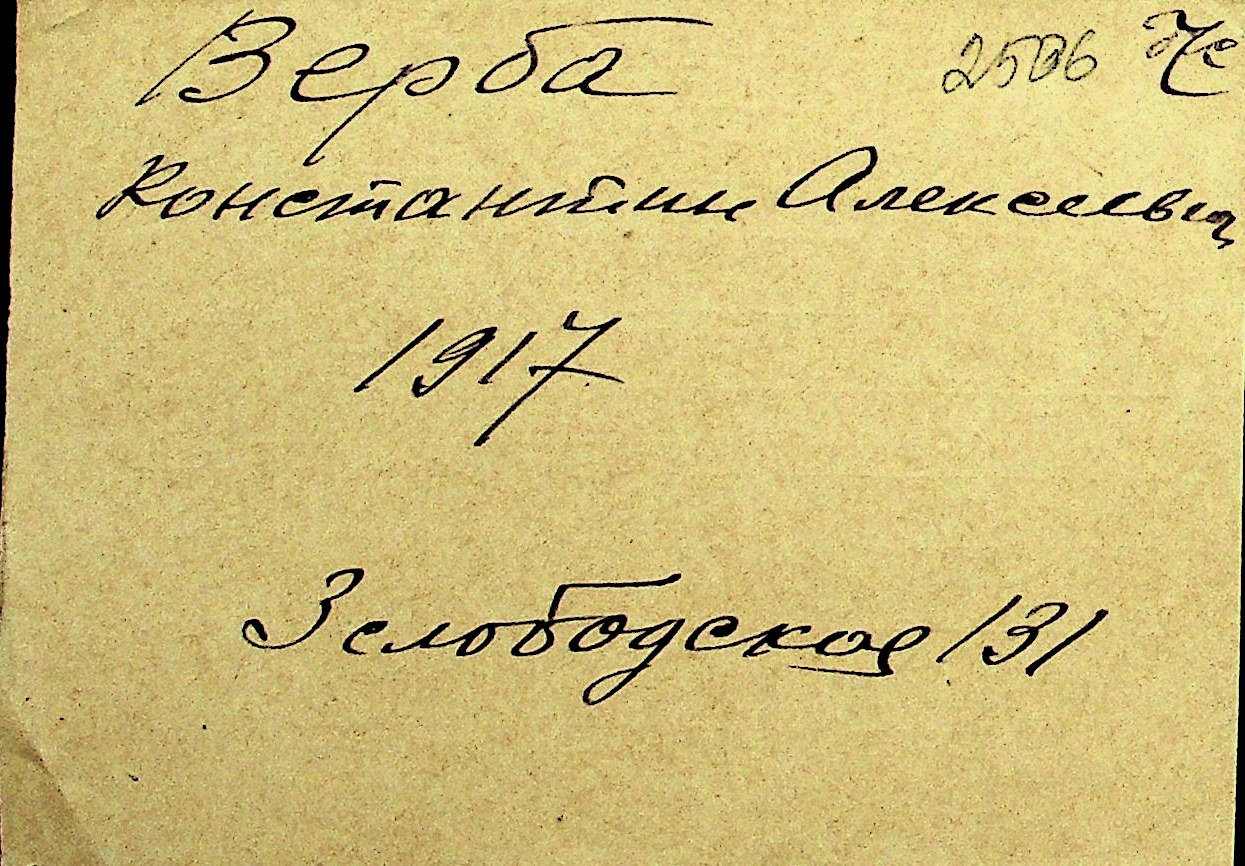 Верба 2506
Константин Алексеевич
1917
3 слободская 131